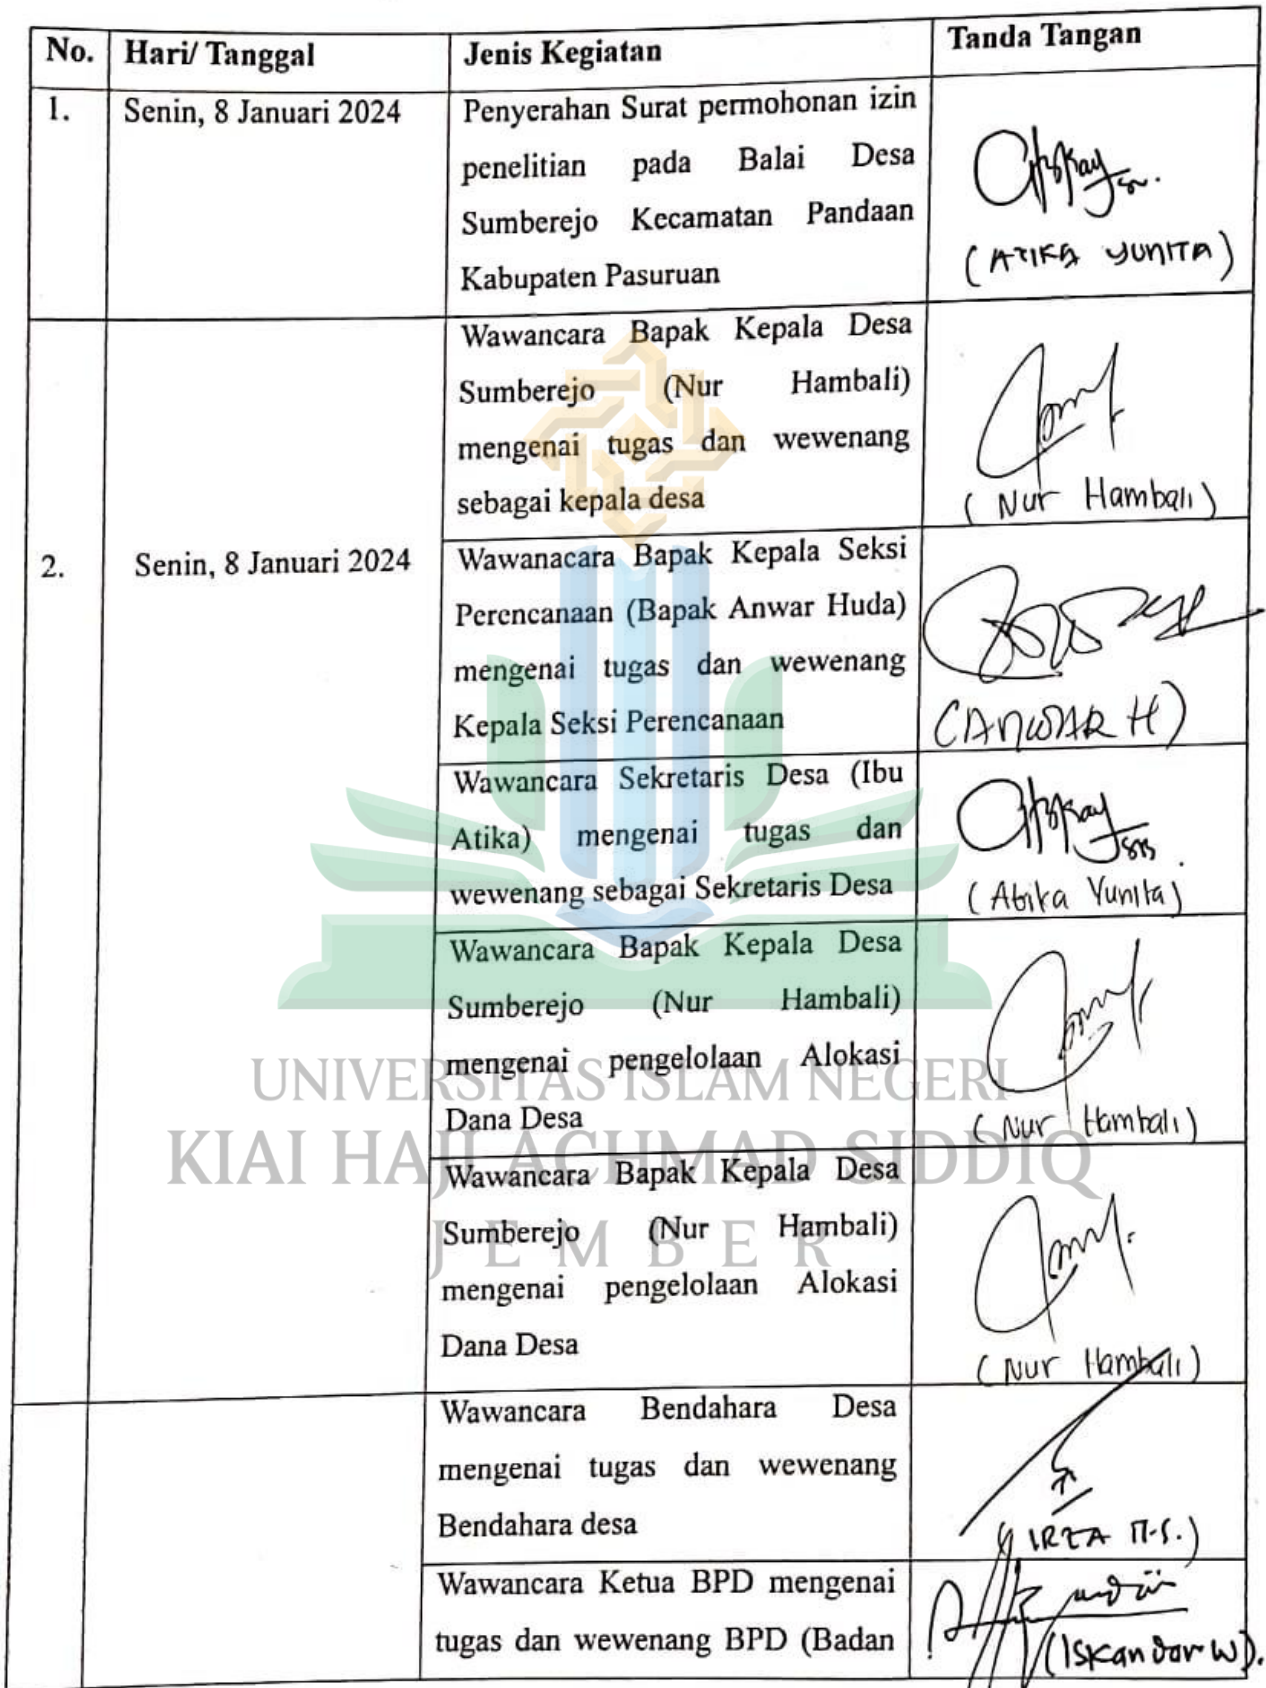 No. Hari/ Tanggal Jenis Kegiatan Tanda Tangan
1. Senin, 8 Januari 2024 Penyerahan Surat permohonan izin
penelitian pada Balai Desa
Sumberejo Kecamatan Pandaan
Kabupaten Pasuruan
(ATIKA YUNITA)
Wawancara Bapak Kepala Desa
Sumberejo (Nur Hambali)
mengenai tugas dan wewenang
sebagai kepala desa
(Nur Hambali)
2. Senin, 8 Januari 2024
Wawanacara Bapak Kepala Seksi
Perencanaan (Bapak Anwar Huda)
mengenai tugas dan wewenang
Kepala Seksi Perencanaan
(ANWAR H)
Wawancara Sekretaris Desa (Ibu
Atika) mengenai tugas dan
wewenang sebagai Sekretaris Desa
(Atika Yunita)
Wawancara Bapak Kepala Desa
Sumberejo (Nur Hambali)
mengenai pengelolaan Alokasi
Dana Desa
(Nur Hambali)
Wawancara Bapak Kepala Desa
Sumberejo (Nur Hambali)
mengenai pengelolaan Alokasi
Dana Desa
(Nur Hambali)
Wawancara Bendahara Desa
mengenai tugas dan wewenang
Bendahara desa
(IRZA M.S.)
Wawancara Ketua BPD mengenai
tugas dan wewenang BPD (Badan
(Iskandar W).
UNIVERSITAS ISLAM NEGERI
KIAI HAJI ACHMAD SIDDIQ
JEMBER